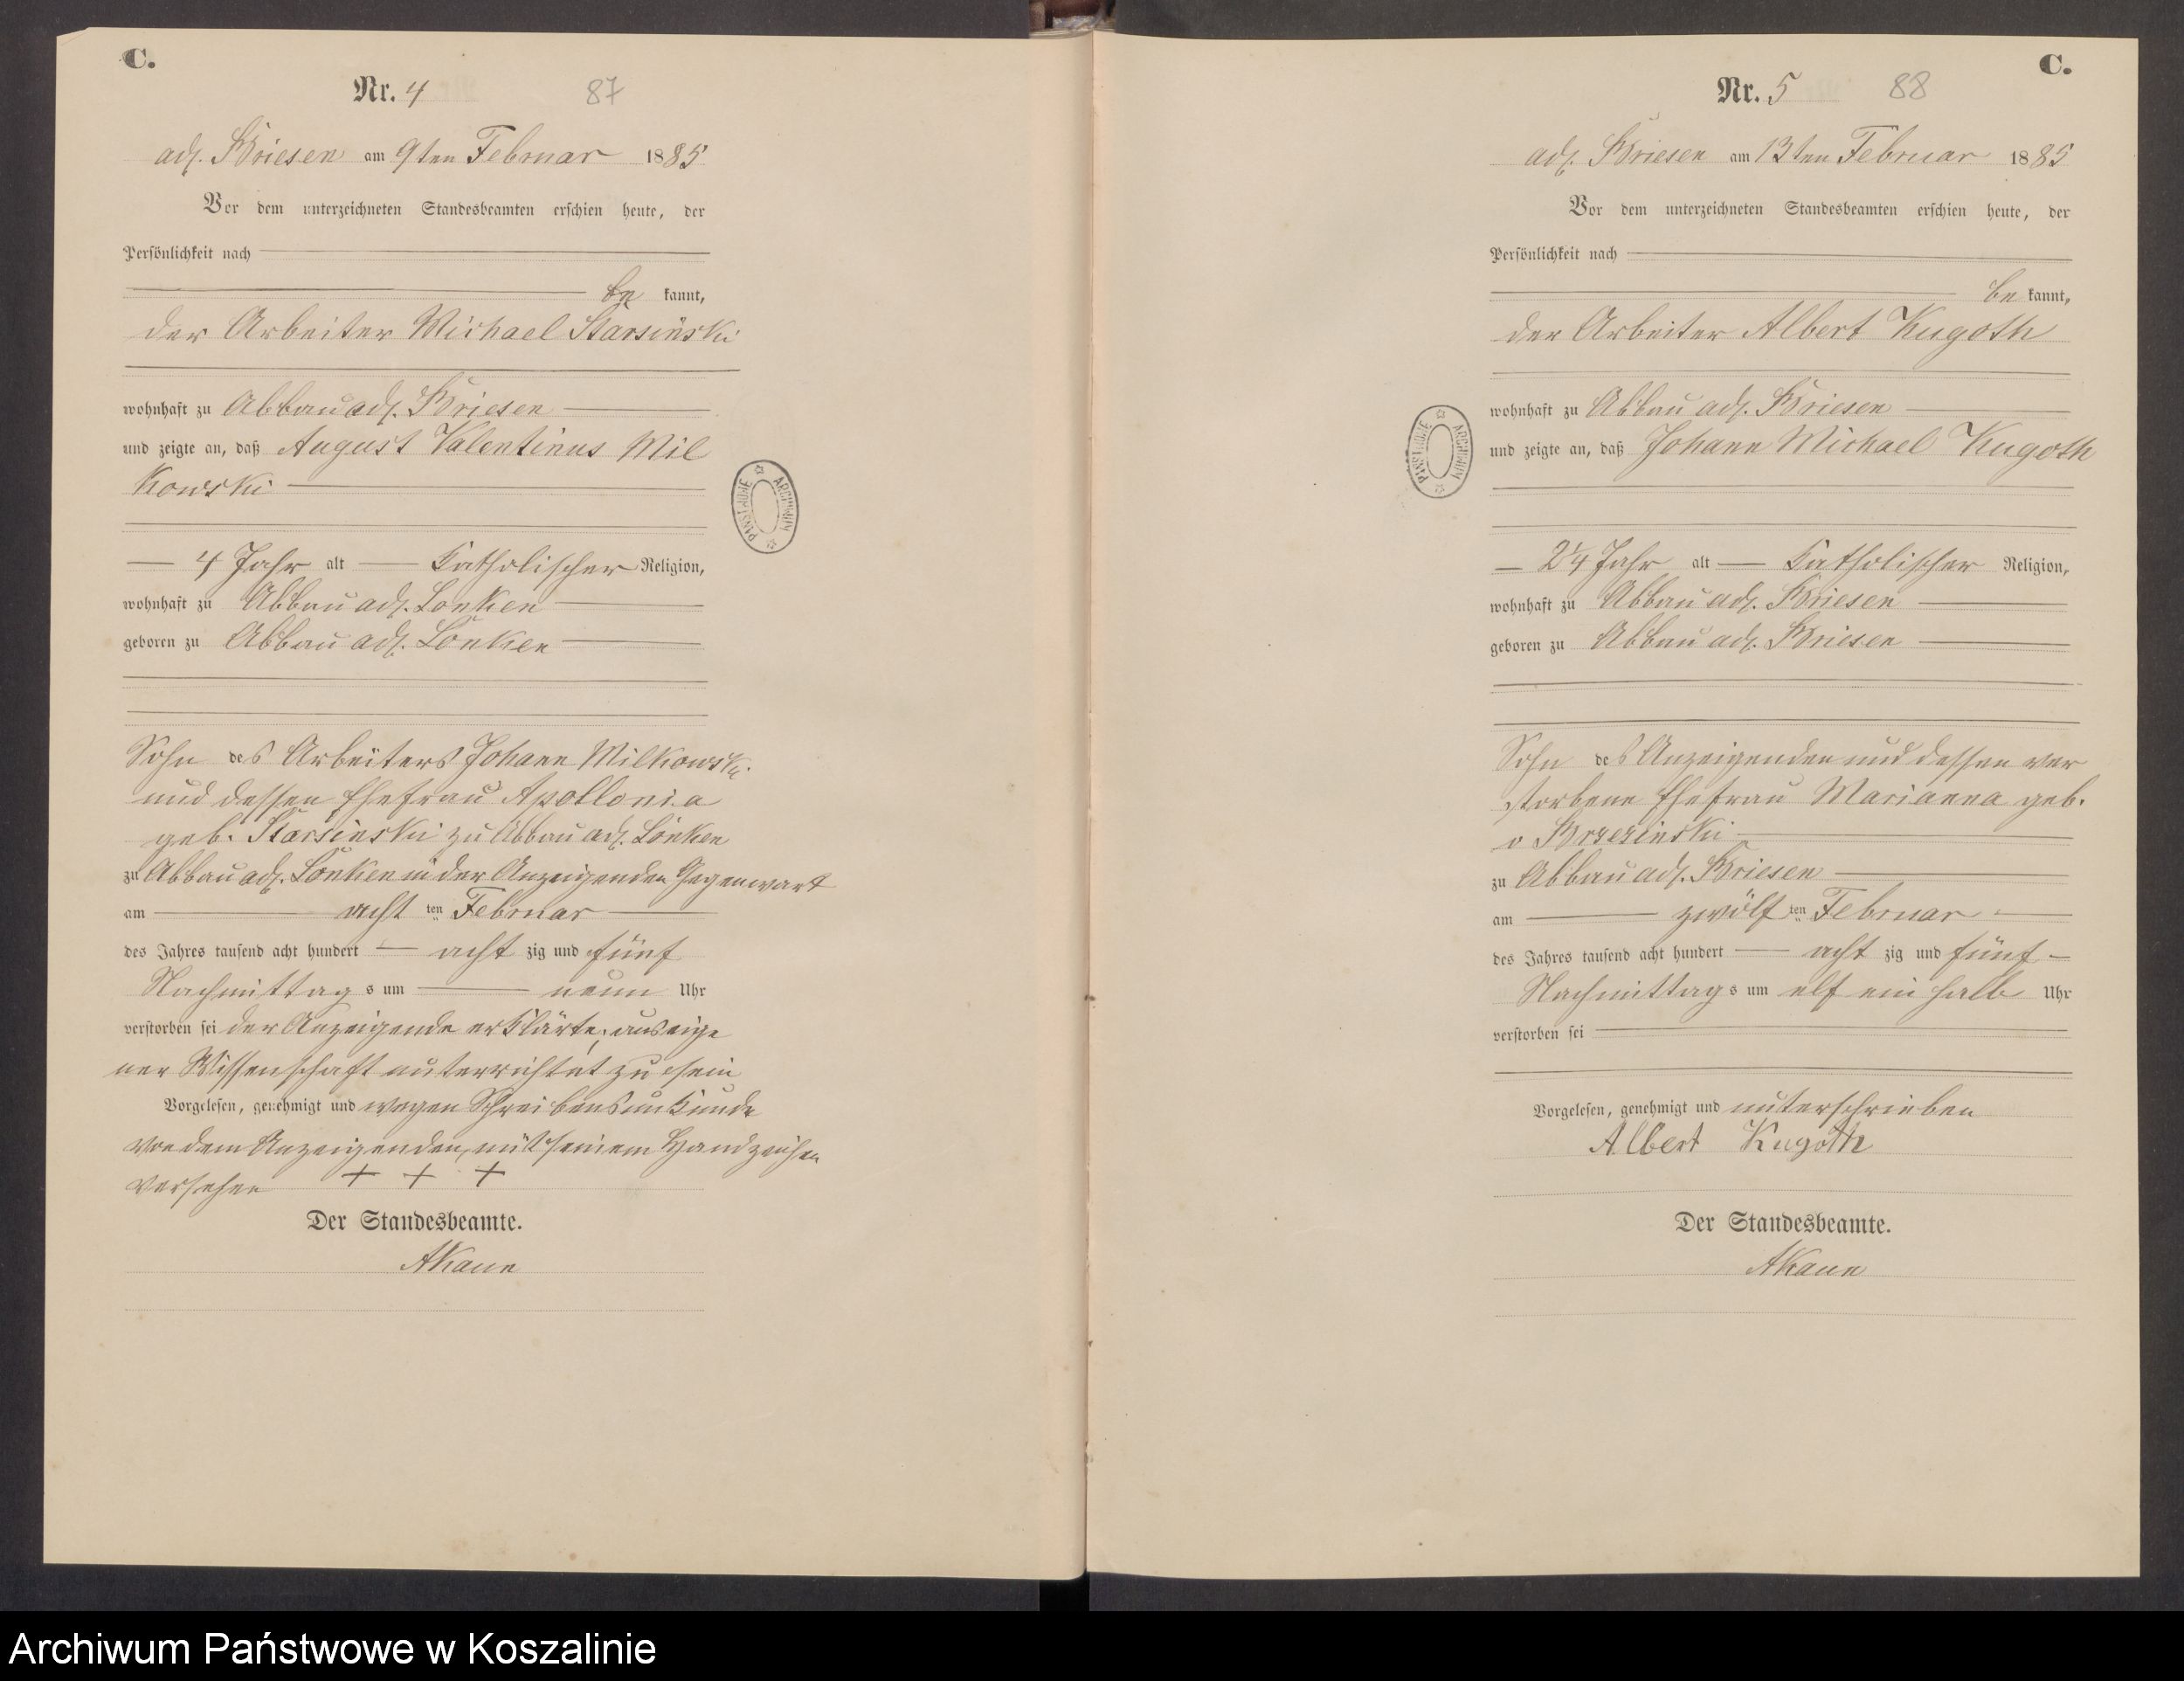 C.
Nr. 4 87
adl. Briesen am 9ten Februar 1885
Vor dem unterzeichneten Standesbeamten erschien heute, der
Persönlichkeit nach
be kannt,
der Arbeiter Michael Starsinski
wohnhaft zu Abbau adl. Briesen
und zeigte an, daß August Valentinus Mil
kowski
4 Jahr alt Katholischer Religion,
wohnhaft zu Abbau adl. Lonken
geboren zu Abbau adl. Lonken
Sohn des Arbeiters Johann Milkowski
und dessen Ehefrau Apollonia
geb. Starsinski zu Abbau adl. Lonken
zu Abbau adl. Lonken in der Anzeigenden Gegenwart
am acht ten Februar
des Jahres tausend acht hundert acht zig und fünf
Nachmittag s um neun Uhr
verstorben sei der Anzeigende erklärte, aus eige
ner Wissenschaft unterrichtet zu sein
Vorgelesen, genehmigt und wegen Schreibensunkunde
von dem Anzeigenden, mit seinem Handzeichen
versehen + + +
Der Standesbeamte.
AKaun
PAŃSTWOWE ARCHIWUM
C.
Nr. 5 88
adl. Briesen am 13ten Februar 1885
Vor dem unterzeichneten Standesbeamten erschien heute, der
Persönlichkeit nach
be kannt,
der Arbeiter Albert Kugoth
wohnhaft zu Abbau adl. Briesen
und zeigte an, daß Johann Michael Kugoth
2¼ Jahr alt Katholischer Religion,
wohnhaft zu Abbau adl. Briesen
geboren zu Abbau adl. Briesen
Sohn des Anzeigenden und dessen ver
storbene Ehefrau Marianna geb.
v Brzezinski
zu Abbau adl. Briesen
am zwölf ten Februar
des Jahres tausend acht hundert acht zig und fünf
Nachmittag s um elf ein halb Uhr
verstorben sei
Vorgelesen, genehmigt und unterschrieben
Albert Kugoth
Der Standesbeamte.
AKaun
PAŃSTWOWE ARCHIWUM
Archiwum Państwowe w Koszalinie